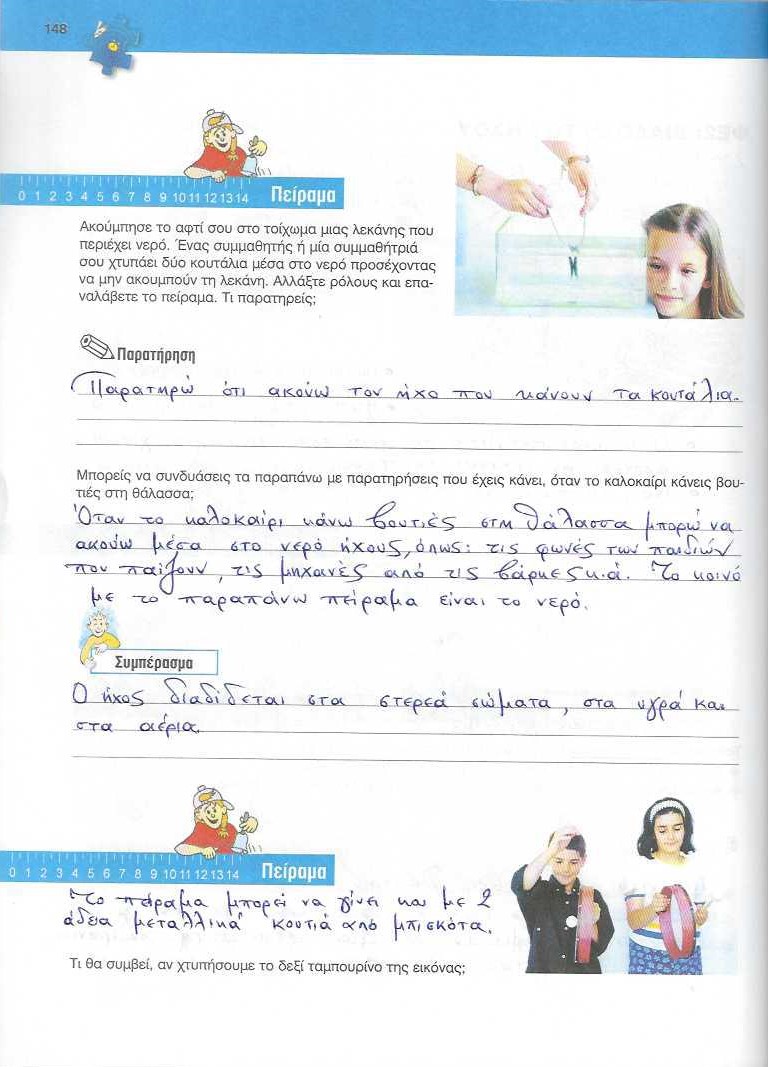 148
0 1 2 3 4 5 6 7 8 9 10 11 12 13 14 Πείραμα
Ακούμπησε το αφτί σου στο τοίχωμα μιας λεκάνης που
περιέχει νερό. Ένας συμμαθητής ή μία συμμαθήτριά
σου χτυπάει δύο κουτάλια μέσα στο νερό προσέχοντας
να μην ακουμπούν τη λεκάνη. Αλλάξτε ρόλους και επα-
ναλάβετε το πείραμα. Τι παρατηρείς;
Παρατήρηση
Παρατηρώ ότι ακούω τον ήχο που κάνουν τα κουτάλια.
Μπορείς να συνδυάσεις τα παραπάνω με παρατηρήσεις που έχεις κάνει, όταν το καλοκαίρι κάνεις βου-
τιές στη θάλασσα;
Όταν το καλοκαίρι κάνω βουτιές στη θάλασσα μπορώ να
ακούω μέσα στο νερό ήχους, όπως: τις φωνές των παιδιών
που παίζουν, τις μηχανές από τις βάρκες κ.ά. Το κοινό
με το παραπάνω πείραμα είναι το νερό.
Συμπέρασμα
Ο ήχος διαδίδεται στα στερεά σώματα, στα υγρά και
στα αέρια.
0 1 2 3 4 5 6 7 8 9 10 11 12 13 14 Πείραμα
Το πείραμα μπορεί να γίνει και με 2
άδεια μεταλλικά κουτιά από μπισκότα.
Τι θα συμβεί, αν χτυπήσουμε το δεξί ταμπουρίνο της εικόνας;